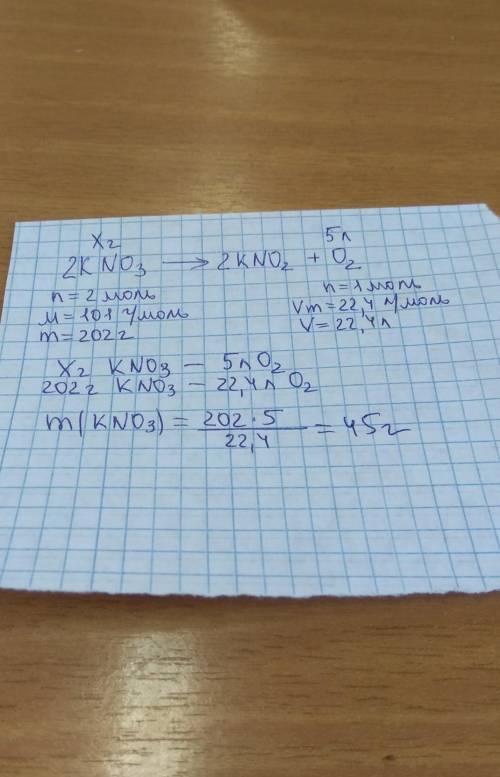 xг 5л
2KNO₃ → 2KNO₂ + O₂
n = 2 моль n = 1 моль
M = 101 г/моль Vm = 22,4 л/моль
m = 202 г V = 22,4 л
Xг KNO₃ — 5л O₂
202г KNO₃ — 22,4 л O₂
m(KNO₃) = 202 · 5 / 22,4 = 45г